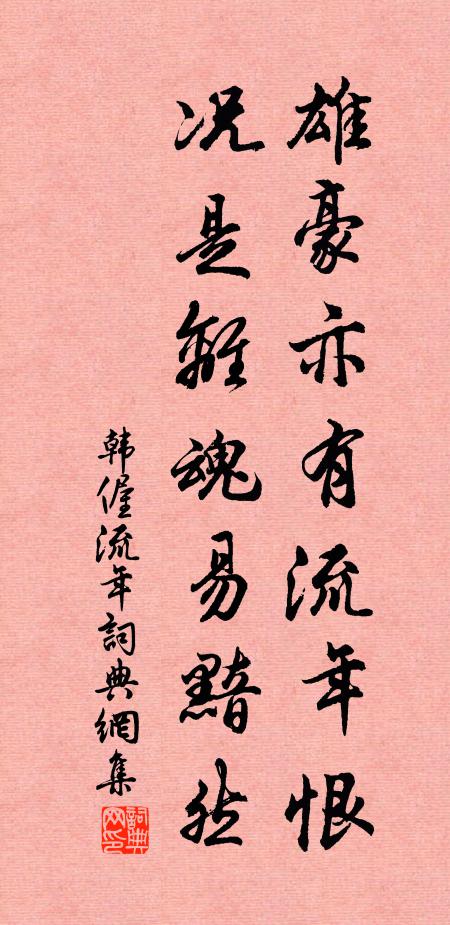 雄豪亦有流年恨
况是離魂易黯然
韩偓流年詞典網集
詞典网印